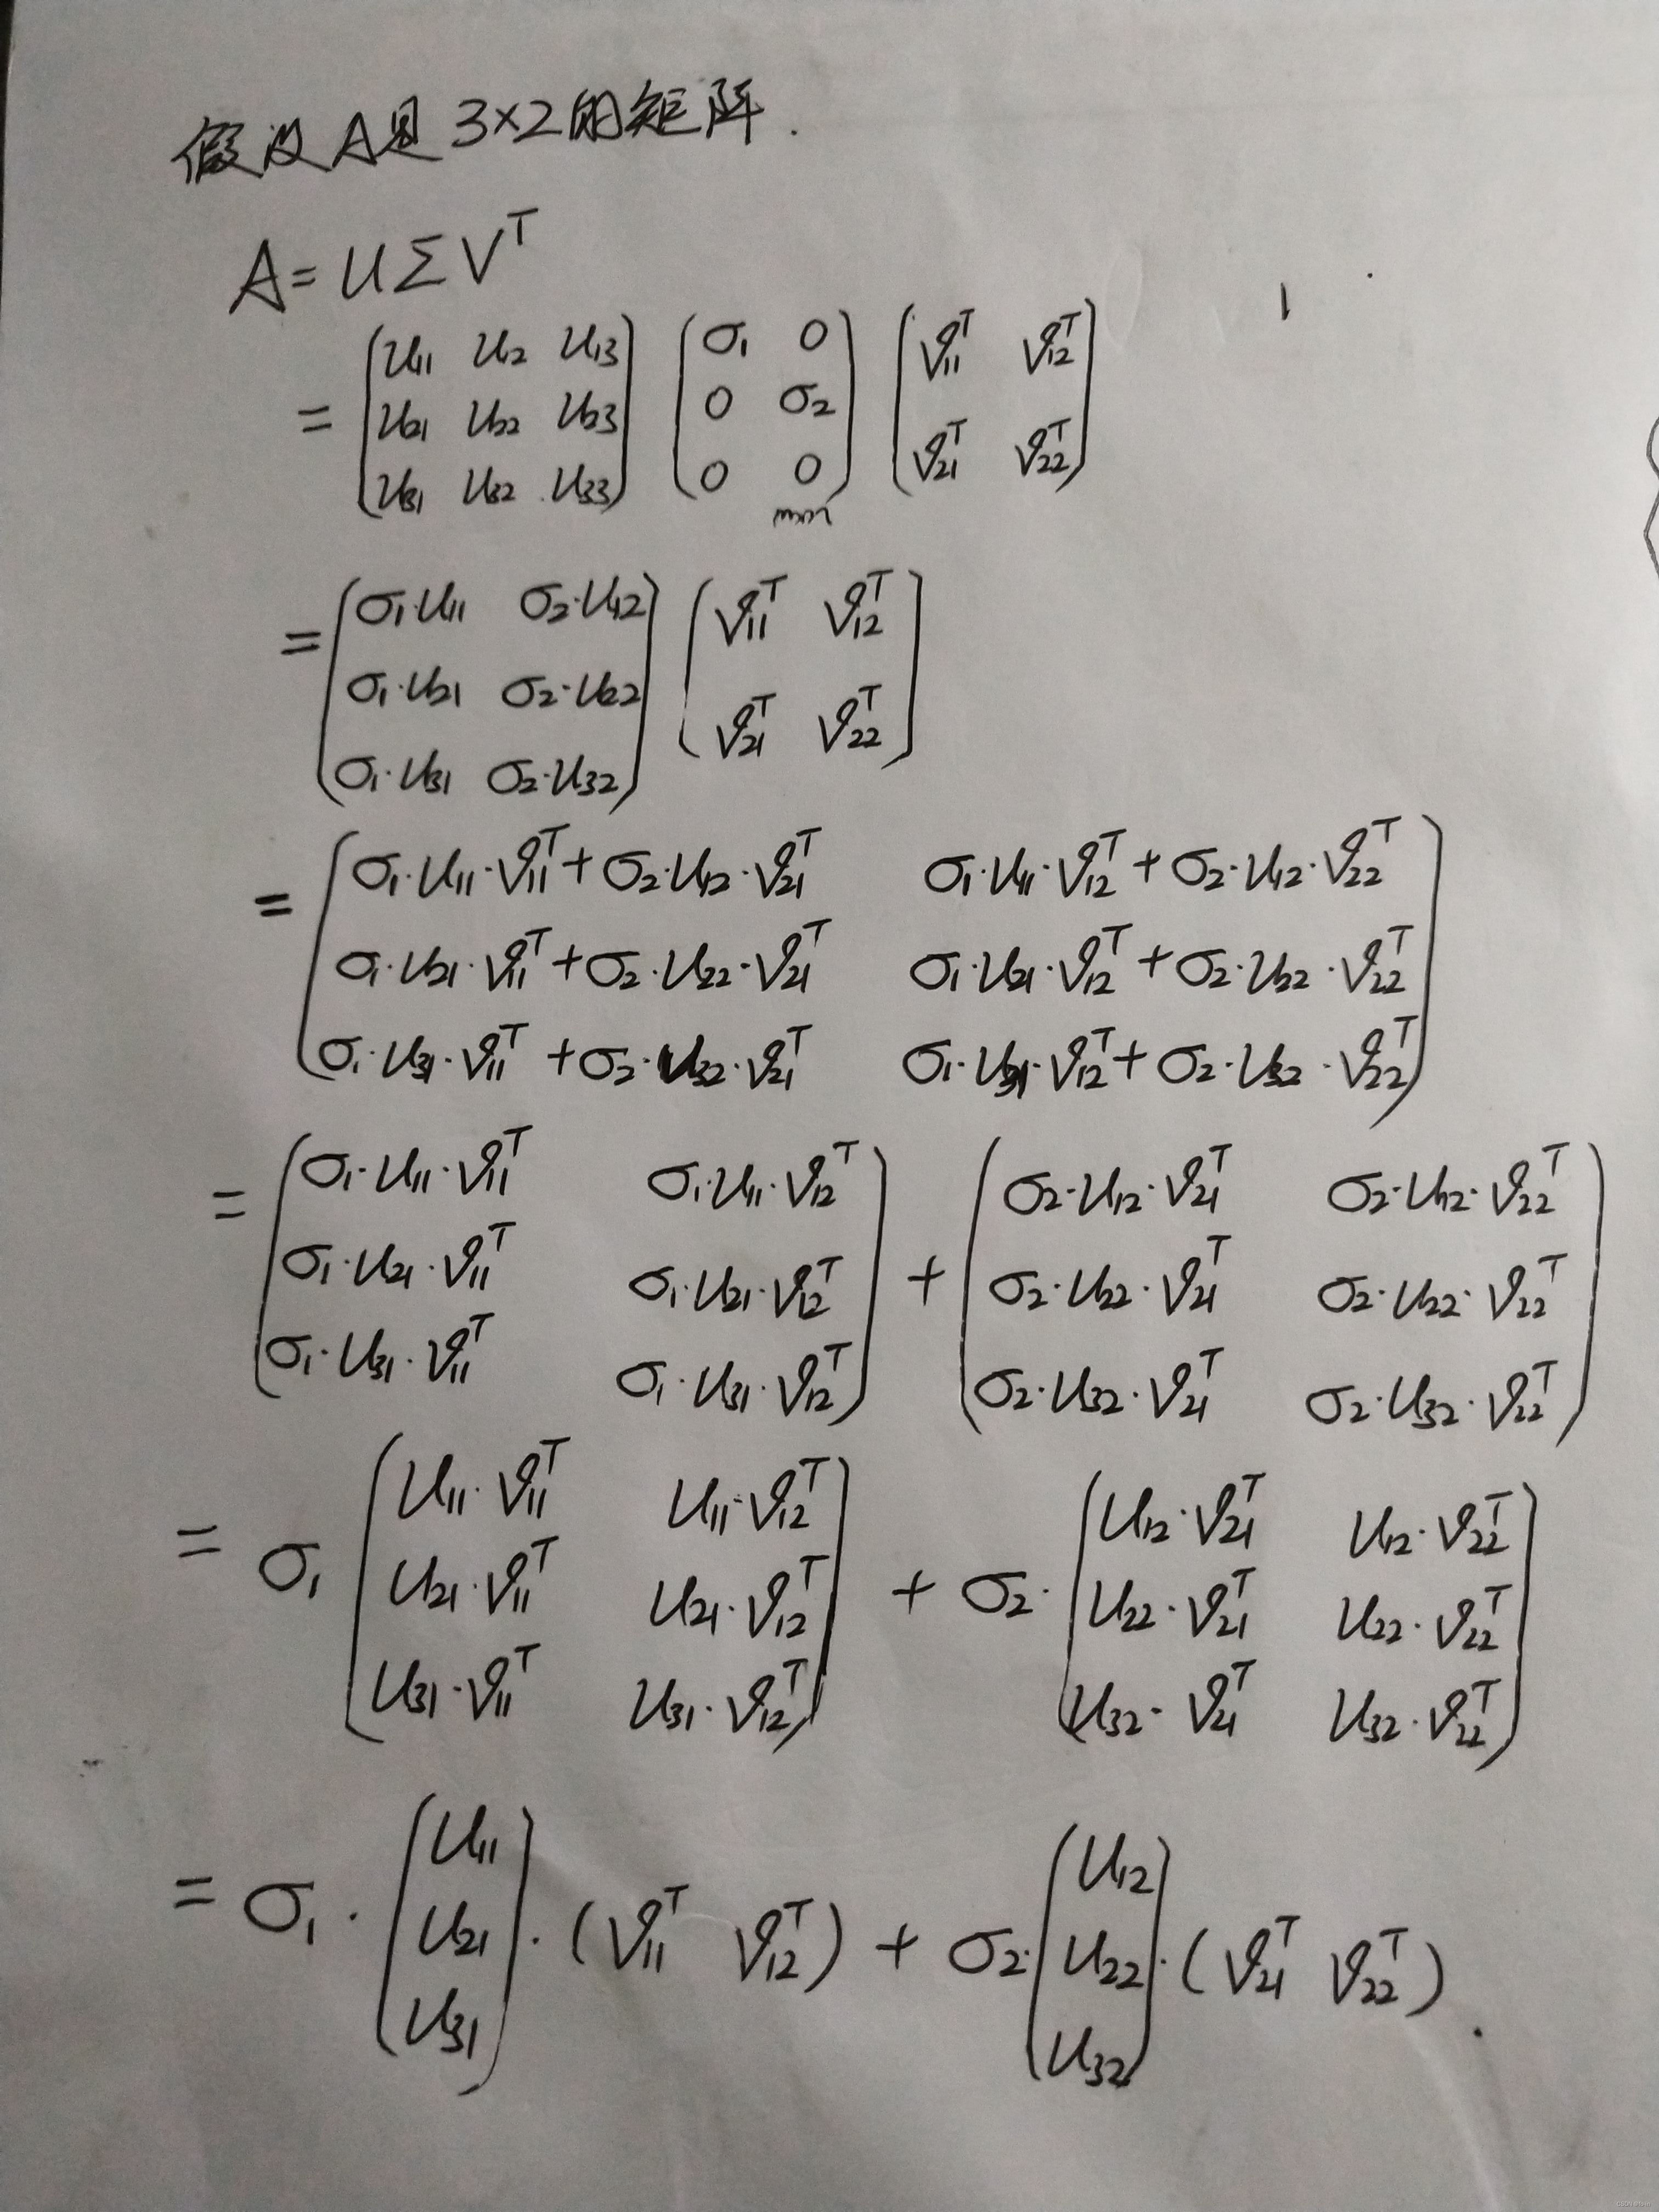 假设A是3×2的矩阵.
A=UΣV^T
= (u11 u12 u13; u21 u22 u23; u31 u32 u33) (σ1 0; 0 σ2; 0 0) (v11^T v12^T; v21^T v22^T)
= (σ1·u11 σ2·u12; σ1·u21 σ2·u22; σ1·u31 σ2·u32) (v11^T v12^T; v21^T v22^T)
= (σ1·u11·v11^T+σ2·u12·v21^T σ1·u11·v12^T+σ2·u12·v22^T; σ1·u21·v11^T+σ2·u22·v21^T σ1·u21·v12^T+σ2·u22·v22^T; σ1·u31·v11^T+σ2·u32·v21^T σ1·u31·v12^T+σ2·u32·v22^T)
= (σ1·u11·v11^T σ1·u11·v12^T; σ1·u21·v11^T σ1·u21·v12^T; σ1·u31·v11^T σ1·u31·v12^T) + (σ2·u12·v21^T σ2·u12·v22^T; σ2·u22·v21^T σ2·u22·v22^T; σ2·u32·v21^T σ2·u32·v22^T)
= σ1 (u11·v11^T u11·v12^T; u21·v11^T u21·v12^T; u31·v11^T u31·v12^T) + σ2· (u12·v21^T u12·v22^T; u22·v21^T u22·v22^T; u32·v21^T u32·v22^T)
= σ1· (u11; u21; u31) · (v11^T v12^T) + σ2· (u12; u22; u32) · (v21^T v22^T).